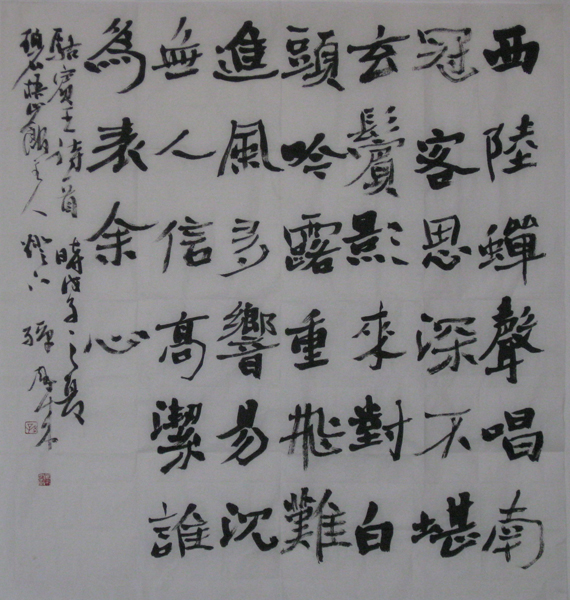 西陸蟬聲唱南
冠客思深不堪
玄鬢影來對白
頭吟露重飛難
進風多響易沈
無人信高潔誰
爲表余心
駱賓王詩一首 時戊子之夏
山館主人 燈下